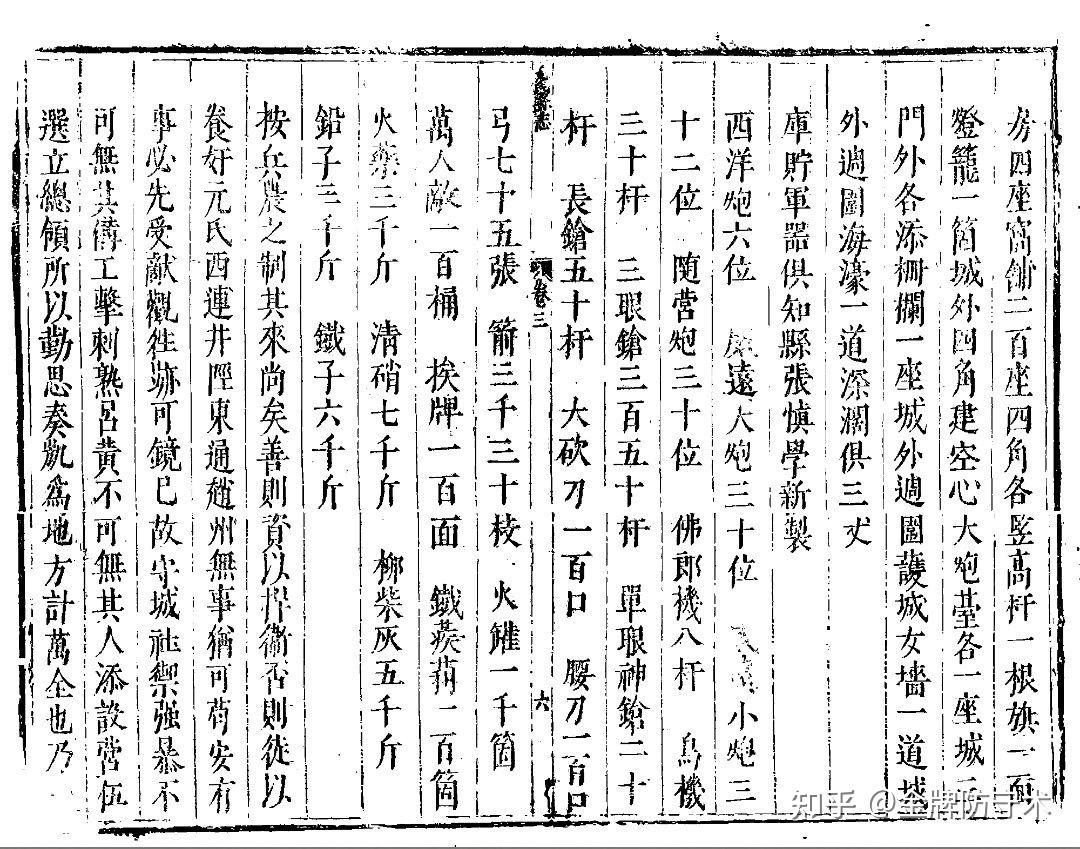 房四座窩鋪二百座四角各竪高杆一根旗一面
燈籠一箇城外四角建空心大炮臺各一座城三
門外各添柵攔一座城外週圍護城女墻一道城
外週圍海濠一道深濶俱三丈
庫貯軍器俱知縣張慎學新製
西洋炮六位 遠大炮三十位 小炮三
十二位 隨營炮三十位 佛郎機八杆 鳥機
三十杆 三眼鎗三百五十杆 單眼神鎗二十
杆 長鎗五十杆 大砍刀一百口 腰刀一百口
志 卷三 六
弓七十五張 箭三千三十枝 火罐一千箇
萬人敵一百桶 挨牌一百面 鐵蒺藜一百箇
火藥三千斤 清硝七千斤 柳柴灰五千斤
鉛子三千斤 鐵子六千斤
按兵農之制其來尚矣善則資以捍衞否則徒以
養奸元氏西連井陘東通趙州無事猶可茍安有
事必先受獻觀徃跡可鏡已故守城祉禦强暴不
可無其備工擊刺熟呂黄不可無其人添設營伍
選立總領所以勤思奏凱爲地方計萬全也乃
知乎 @金牌防守术